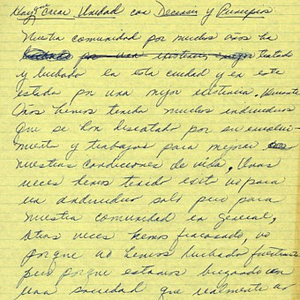 Hay que Crear, Unidad con Decisión y Principios
Nuestra comunidad por muchos años ha
tratado
y luchado en esta ciudad y en este
estado por una mejor existencia. Durante
Años hemos tenido muchos individuos
que se han destacado por su
y trabajos para mejorar
nuestras condiciones de vida. Unas
veces hemos tenido exito no para
un individuo solo pero para
nuestra comunidad en general,
otras veces hemos fracasado, no
porque no hemos luchado fuertemente
pero porque estamos buscando en
una sociedad que realmente no